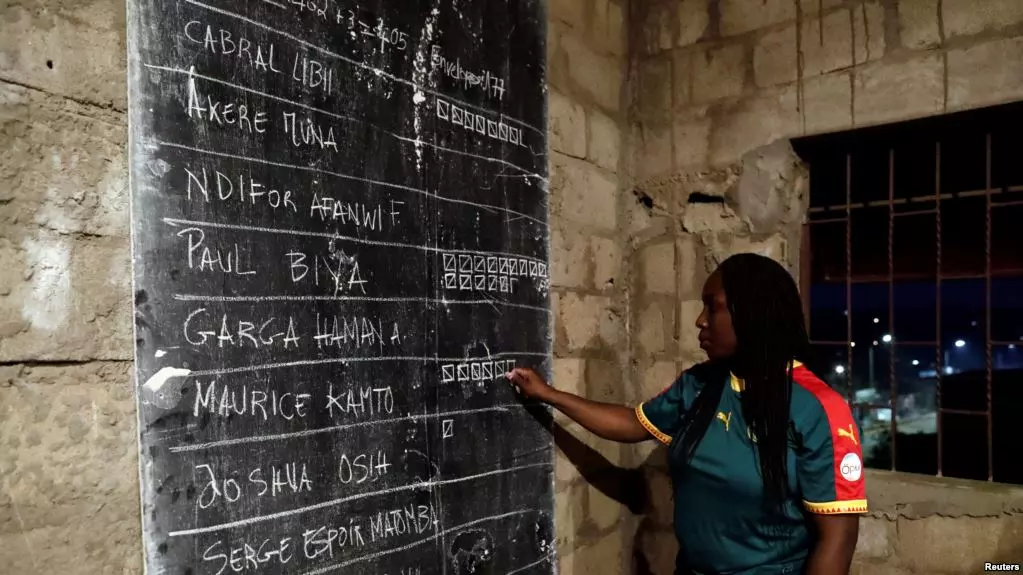 402 + 3 = 405
CABRAL LIBII
Enveloppe 177
AKERE MUNA
NDIFOR AFANWI F.
PAUL BIYA
GARGA HAMAN A.
MAURICE KAMTO
JOSHUA OSIH
SERGE ESPOIR MATOMBA
Reuters